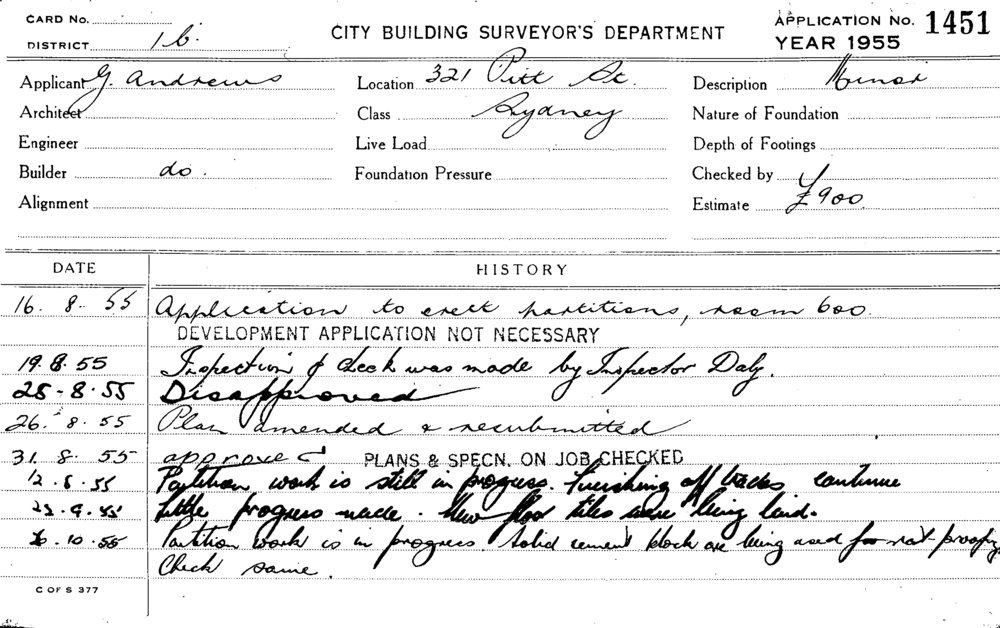 CARD No.
CITY BUILDING SURVEYOR'S DEPARTMENT
APPLICATION No. 1451
DISTRICT 1b.
YEAR 1955
Applicant G. Andrews
Location 321 Pitt St.
Description Minor
Architect
Class Sydney
Nature of Foundation
Engineer
Live Load
Depth of Footings
Builder do.
Foundation Pressure
Checked by
Alignment
Estimate £900
DATE HISTORY
16. 8. 55 Application to erect partitions, room 600.
DEVELOPMENT APPLICATION NOT NECESSARY
19.8.55 Inspection & check was made by Inspector Daly.
25-8.55 Disapproved
26. 8.55 Plan amended & resubmitted
31. 8. 55 approved PLANS & SPECN. ON JOB CHECKED
55 Partition work is still in progress. Finishing off continue
55 Little progress made. New floor tiles were being laid.
10.55 Partition work is in progress. Solid cement block are being used for
Check same.
C OF S 377